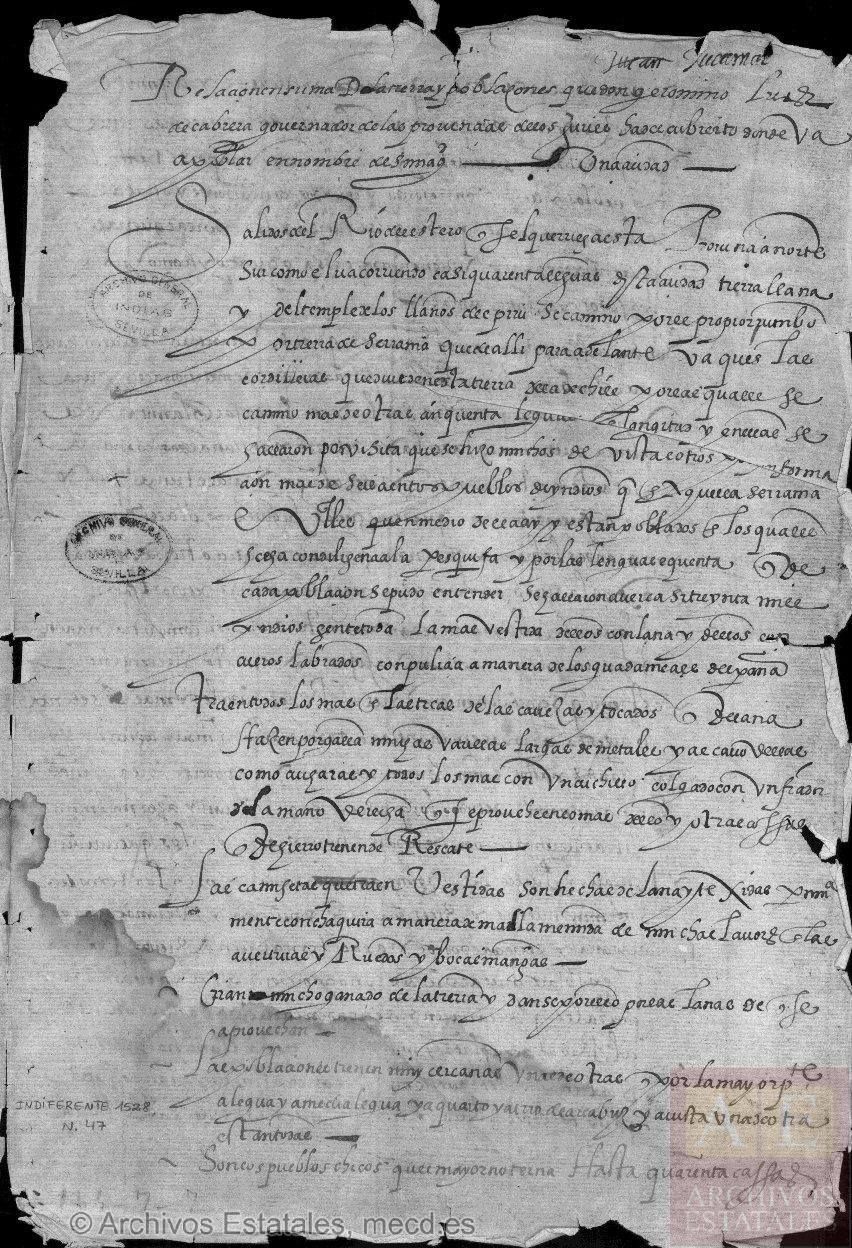 Juan Tucaman
Relaçion en suma De la tierra y poblaçones que don geronimo Luis
de cabrera governador de las provinçias de los Juries ha descubierto donde va
a poblar en nombre de su mag Una ciudad
Salidos del Rio del estero q es el que riega esta Provinçia norte
Sur como el va corriendo casi quarenta leguas desta ciudad tierra llana
y del temple de los llanos del piru Se camino por el propio rumbo
por tierra de serrania que de alli para adelante va que es las
cordilleras que vienen esta tierra de la de chile por las quales se
camino mas de otras çinquenta leguas de longitud y en ellas se
hallaron por visita que se hizo muchos de vista e otros por informa
çion mas de seisçientos pueblos de yndios q en aquella serrania
e Valles que en medio della ay estan poblados en los quales
hecha con diligençia la pesquisa y por las lenguas e quenta de
cada poblaçion se pudo entender se hallaron aver casi treynta mill
yndios gente toda la mas vestida dellos con lana y dellos con
cueros labrados con puliçia a manera de los guadameçies de españa
traen todos los mas en las ticas de las caveças y tocados q de lana
hazen por gala muchas varillas largas de metales y al cavo dellas
como cucharas y todos los mas con un cuchillo colgado con un fiador
de la mano derecha q se provehen los mas dello y otras cossas
de hierro tienen de Rescate
Las camisetas que traen Vestidas son hechas de lana y texidas prima
mente con chaquira a manera de malla menuda de muchas lavores en las
averturas y Ruedos y bocas mangas
Crian mucho ganado de la tierra y danse por ello por las lanas de q se
aprovechan
Las poblaçiones tienen muy çercanas unas de otras q por la mayor pte
a legua y a media legua y a quarto y a tiro de arcabuz y a vista una de otra
estan todas
Son los pueblos chicos que el mayor no terna hasta quarenta cassas
ARCHIVO GENERAL DE INDIAS SEVILLA
ARCHIVO GENERAL DE INDIAS SEVILLA
INDIFERENTE 1528
N. 47
AE
ARCHIVOS
ESTATALES
© Archivos Estatales, mecd.es